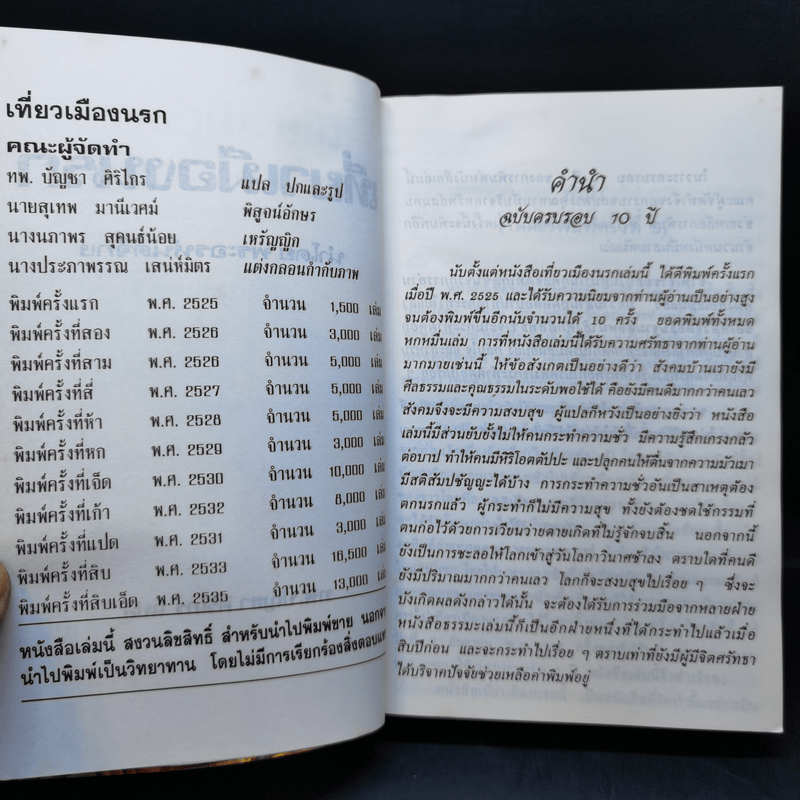 เที่ยวเมืองนรก
คณะผู้จัดทำ
ทพ. บัญชา ศิริไกร แปล ปกและรูป
นายสุเทพ มานีเวศม์ พิสูจน์อักษร
นางนภาพร สุคนธ์น้อย เหรัญญิก
นางประภาพรรณ เสน่ห์มิตร แต่งกลอนกำกับภาพ
พิมพ์ครั้งแรก พ.ศ. 2525 จำนวน 1,500 เล่ม
พิมพ์ครั้งที่สอง พ.ศ. 2526 จำนวน 3,000 เล่ม
พิมพ์ครั้งที่สาม พ.ศ. 2526 จำนวน 5,000 เล่ม
พิมพ์ครั้งที่สี่ พ.ศ. 2527 จำนวน 5,000 เล่ม
พิมพ์ครั้งที่ห้า พ.ศ. 2528 จำนวน 5,000 เล่ม
พิมพ์ครั้งที่หก พ.ศ. 2529 จำนวน 3,000 เล่ม
พิมพ์ครั้งที่เจ็ด พ.ศ. 2530 จำนวน 10,000 เล่ม
พิมพ์ครั้งที่เก้า พ.ศ. 2532 จำนวน 8,000 เล่ม
พิมพ์ครั้งที่แปด พ.ศ. 2531 จำนวน 3,000 เล่ม
พิมพ์ครั้งที่สิบ พ.ศ. 2533 จำนวน 16,500 เล่ม
พิมพ์ครั้งที่สิบเอ็ด พ.ศ. 2535 จำนวน 13,000 เล่ม
หนังสือเล่มนี้ สงวนลิขสิทธิ์ สำหรับนำไปพิมพ์ขาย
นำไปพิมพ์เป็นวิทยาทาน โดยไม่มีการเรียกร้องสิ่งตอบแทน
คำนำ
ฉบับครบรอบ 10 ปี
นับตั้งแต่หนังสือเที่ยวเมืองนรกเล่มนี้ ได้ตีพิมพ์ครั้งแรก
เมื่อปี พ.ศ. 2525 และได้รับความนิยมจากท่านผู้อ่านเป็นอย่างสูง
จนต้องพิมพ์ขึ้นอีกนับจำนวนได้ 10 ครั้ง ยอดพิมพ์ทั้งหมด
หกหมื่นเล่ม การที่หนังสือเล่มนี้ได้รับความศรัทธาจากท่านผู้อ่าน
มากมายเช่นนี้ ให้ข้อสังเกตเป็นอย่างดีว่า สังคมบ้านเรายังมี
ศีลธรรมและคุณธรรมในระดับพอใช้ได้ คือยังมีคนดีมากกว่าคนเลว
สังคมจึงจะมีความสงบสุข ผู้แปลก็หวังเป็นอย่างยิ่งว่า หนังสือ
เล่มนี้มีส่วนยับยั้งไม่ให้คนกระทำความชั่ว มีความรู้สึกเกรงกลัว
ต่อบาป ทำให้คนมีหิริโอตตัปปะ และปลุกคนให้ตื่นจากความมัวเมา
มีสติสัมปชัญญะได้บ้าง การกระทำความชั่วอันเป็นสาเหตุต้อง
ตกนรกแล้ว ผู้กระทำก็ไม่มีความสุข ทั้งยังต้องชดใช้กรรมที่
ตนก่อไว้ด้วยการเวียนว่ายตายเกิดที่ไม่รู้จักจบสิ้น นอกจากนี้
ยังเป็นการชะลอให้โลกเข้าสู่วันโลกาวินาศช้าลง ตราบใดที่คนดี
ยังมีปริมาณมากกว่าคนเลว โลกก็จะสงบสุขไปเรื่อย ๆ ซึ่งจะ
บังเกิดผลดังกล่าวได้นั้น จะต้องได้รับการร่วมมือจากหลายฝ่าย
หนังสือธรรมะเล่มนี้ก็เป็นอีกฝ่ายหนึ่งที่ได้กระทำไปแล้วเมื่อ
สิบปีก่อน และจะกระทำไปเรื่อย ๆ ตราบเท่าที่ยังมีผู้มีจิตศรัทธา
ได้บริจาคปัจจัยช่วยเหลือค่าพิมพ์อยู่